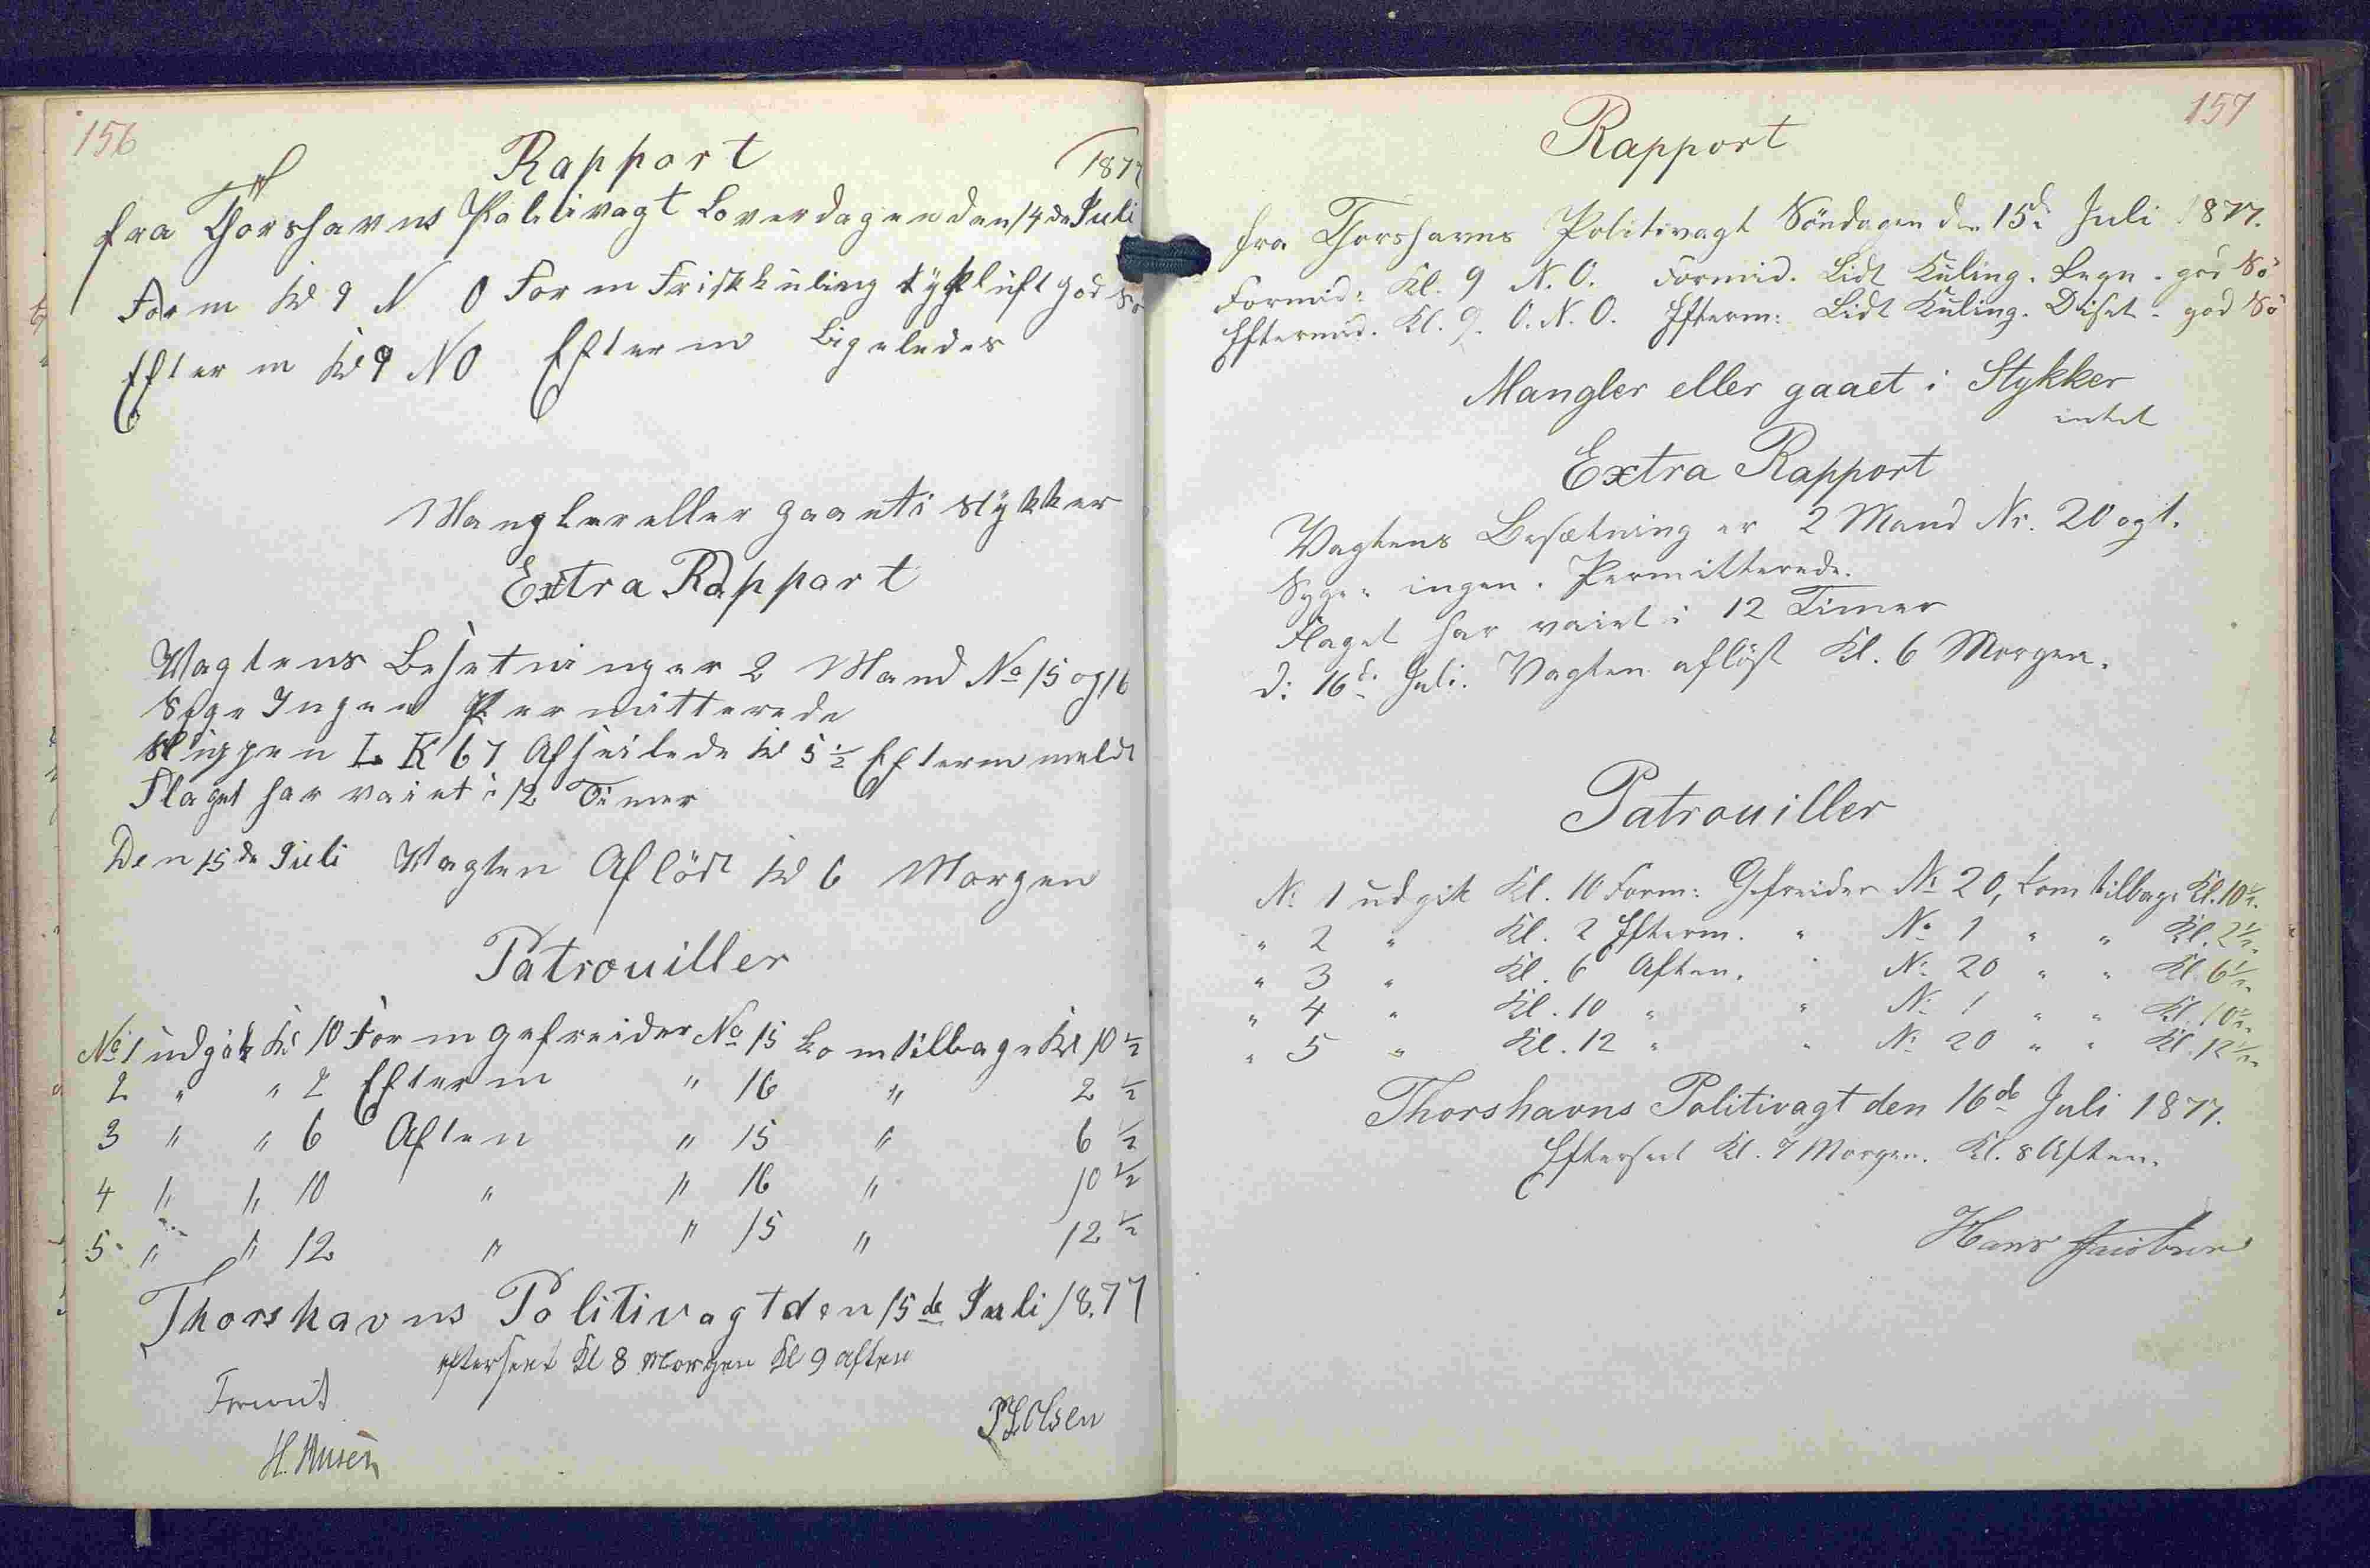 156
Rapport
1877
fra Thorshavns Politivagt Loverdagen den 14de Juli
Form Kl 9 N O Form Friskkuling tykluft god Sö
Efterm Kl 9 NO Efterm Ligeledes
Mangler eller gaaet i stykker
Extra Rapport
Vagtens Besetning er 2 Mand No 15 og 16
Syge Ingen Permitterede
Sluppen L K 67 Afseilede Kl 5 1/2 Efterm meldt
Flaget har vaiet i 12 Timer
Den 15de Juli Vagten Aflöst Kl 6 Morgen
Patrouiller
No 1 udgik Kl 10 Form gefreider No 15 kom tilbage Kl 10 1/2
2 " " 2 Efterm " 16 " 2 1/2
3 " " 6 Aften " 15 " 6 1/2
4 " " 10 " " 16 " 10 1/2
5 " " 12 " " 15 " 12 1/2
Thorshavns Politivagt den 15de Juli 1877
efterseet Kl 8 Morgen Kl 9 Aften
PLOlsen
157
Rapport
fra Thorshavns Politivagt Söndagen den 15de Juli 1877.
Formid: Kl. 9 N.O. Formid. Lidt Kuling. Regn. god Sö
Eftermid. Kl. 9. O.N.O. Efterm: Lidt Kuling. Diset. god Sö
Mangler eller gaaet i Stykker
intet
Extra Rapport
Vagtens Besætning er 2 Mand Nr. 20 og 1.
Syge: ingen. Permitterede.
Flaget har vaiet i 12 Timer
D: 16de Juli. Vagten aflöst Kl. 6 Morgen.
Patrouiller
No 1 udgik Kl. 10 Form: Gefreider No 20, kom tilbage Kl. 10 1/2.
" 2 " Kl. 2 Efterm. " No 1 " " Kl. 2 1/2.
" 3 " Kl. 6 Aften. " No 20 " " Kl. 6 1/2.
" 4 " Kl. 10 " " No 1 " " Kl. 10 1/2.
" 5 " Kl. 12 " " No 20 " " Kl. 12 1/2.
Thorshavns Politivagt den 16de Juli 1877.
Efterseet Kl. 7 Morgen. Kl. 8 Aften.
Hans Jacobsen